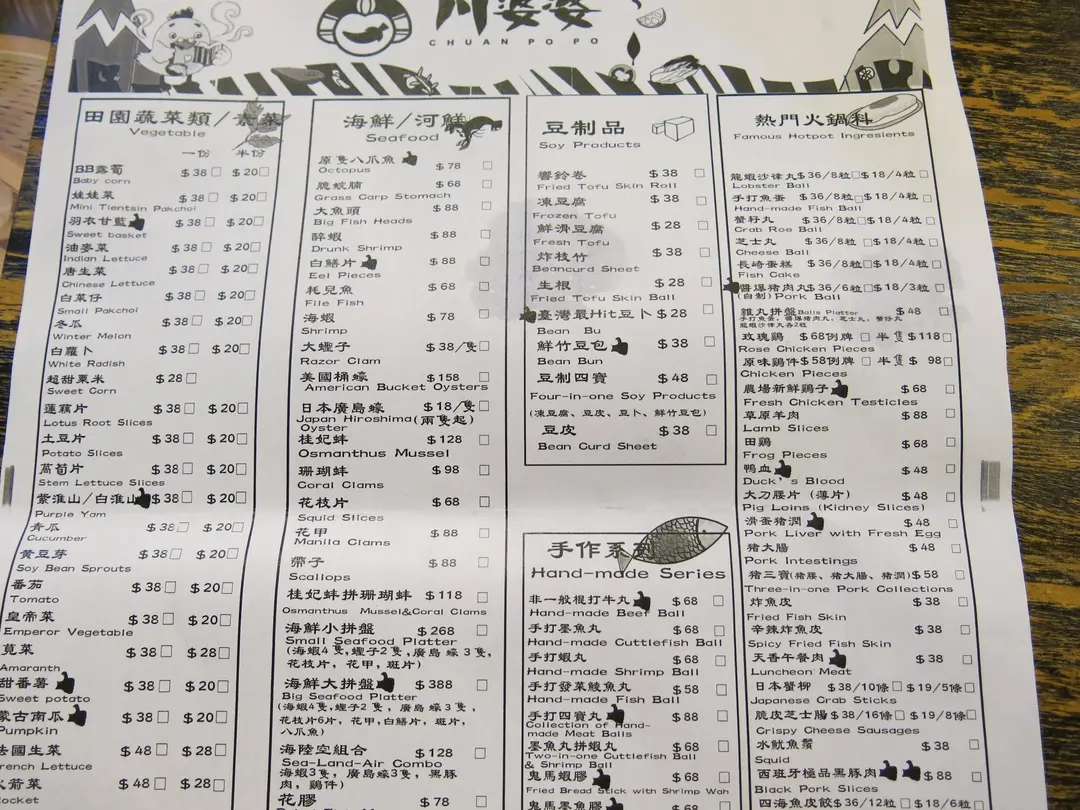 川婆婆
CHUAN PO PO
田園蔬菜類/素菜
Vegetable
一份 半份
BB露荀 $38□ $20□
Baby corn
娃娃菜 $38□ $20□
Mini Tientsin Pakchoi
羽衣甘藍 $38□ $20□
Sweet basket
油麥菜 $38□ $20□
Indian Lettuce
唐生菜 $38□ $20□
Chinese Lettuce
白菜仔 $38□ $20□
Small Pakchoi
冬瓜 $38□ $20□
Winter Melon
白蘿卜 $38□ $20□
White Radish
超甜粟米 $28□
Sweet Corn
蓮藕片 $38□ $20□
Lotus Root Slices
土豆片 $38□ $20□
Potato Slices
萵荀片 $38□ $20□
Stem Lettuce Slices
紫淮山/白淮山 $38□ $20□
Purple Yam
青瓜 $38□ $20□
Cucumber
黃豆芽 $38□ $20□
Soy Bean Sprouts
番茄 $38□ $20□
Tomato
皇帝菜 $38□ $20□
Emperor Vegetable
莧菜 $38□ $28□
Amaranth
甜番薯 $38□ $20□
Sweet potato
蒙古南瓜 $38□ $20□
Pumpkin
法國生菜 $48□ $28□
French Lettuce
火箭菜 $48□ $28□
Rocket
海鮮/河鮮
Seafood
原隻八爪魚 $78 □
Octopus
脆鯇腩 $68 □
Grass Carp Stomach
大魚頭 $88 □
Big Fish Heads
醉蝦 $88 □
Drunk Shrimp
白鱔片 $88 □
Eel Pieces
耗兒魚 $68 □
File Fish
海蝦 $78 □
Shrimp
大蟶子 $38/隻□
Razor Clam
美國桶蠔 $158 □
American Bucket Oysters
日本廣島蠔 $18/隻□
Japan Hiroshima(兩隻起)
Oyster
桂妃蚌 $128 □
Osmanthus Mussel
珊瑚蚌 $98 □
Coral Clams
花枝片 $68 □
Squid Slices
花甲 $88 □
Manila Clams
帶子 $88 □
Scallops
桂妃蚌拼珊瑚蚌 $118 □
Osmanthus Mussel&Coral Clams
海鮮小拼盤 $268 □
Small Seafood Platter
(海蝦4隻,蟶子2隻,廣島蠔3隻,
花枝片,花甲,斑片)
海鮮大拼盤 $388 □
Big Seafood Platter
(海蝦4隻,蟶子2隻,廣島蠔3隻,
花枝片6片,花甲,白鱔片,斑片,
八爪魚)
海陸空組合 $128 □
Sea-Land-Air Combo
海蝦3隻,廣島蠔3隻,黑豚
肉,鷄件)
花膠 $78 □
豆制品
Soy Products
響鈴卷 $38 □
Fried Tofu Skin Roll
凍豆腐 $38 □
Frozen Tofu
鮮滑豆腐 $28 □
Fresh Tofu
炸枝竹 $38 □
Beancurd Sheet
生根 $28 □
Fried Tofu Skin Ball
臺灣最Hit豆卜 $28 □
Bean Bu
鮮竹豆包 $38 □
Bean Bun
豆制四寶 $48 □
Four-in-one Soy Products
(凍豆腐、豆皮、豆卜、鮮竹豆包)
豆皮 $38 □
Bean Curd Sheet
手作系列
Hand-made Series
非一般棍打牛丸 $68 □
Hand-made Beef Ball
手打墨魚丸 $68 □
Hand-made Cuttlefish Ball
手打蝦丸 $68 □
Hand-made Shrimp Ball
手打發菜鯪魚丸 $58 □
Hand-made Fish Ball
手打四寶丸 $88 □
Collection of Hand-
made Meat Balls
墨魚丸拼蝦丸 $68 □
Two-in-one Cuttlefish Ball
& Shrimp Ball
鬼馬蝦膠 $68 □
Fried Bread Stick with Shrimp Wah
鬼馬墨魚膠 $68 □
熱門火鍋料
Famous Hotpot Ingresients
龍蝦沙律丸$36/8粒□$18/4粒□
Lobster Ball
手打魚蛋 $36/8粒□$18/4粒□
Hand-made Fish Ball
蟹籽丸 $36/8粒□$18/4粒□
Crab Roe Ball
芝士丸 $36/8粒□$18/4粒□
Cheese Ball
長崎蛋糕 $36/8粒□$18/4粒□
Fish Cake
醬爆猪肉丸$36/6粒□$18/3粒□
(自制)Pork Ball
雜丸拼盤Balls Platter $48 □
手打魚蛋,醬爆猪肉丸,芝士丸,蟹仔丸
龍蝦沙律丸各2粒
玫瑰鷄 $68例牌 □ 半隻$118□
Rose Chicken Pieces
原味鷄件$58例牌 □ 半隻$ 98□
Chicken Pieces
農場新鮮鷄子 $68 □
Fresh Chicken Testicles
草原羊肉 $88 □
Lamb Slices
田鷄 $68 □
Frog Pieces
鴨血 $48 □
Duck's Blood
大刀腰片 (薄片) $48 □
Pig Loins (Kidney Slices)
滑蛋猪潤 $48 □
Pork Liver with Fresh Egg
猪大腸 $48 □
Pork Intestings
猪三寶(猪腰、猪大腸、猪潤)$58 □
Three-in-one Pork Collections
炸魚皮 $38 □
Fried Fish Skin
辛辣炸魚皮 $38 □
Spicy Fried Fish Skin
天香午餐肉 $38 □
Luncheon Meat
日本蟹柳 $38/10條□ $19/5條□
Japanese Crab Sticks
脆皮芝士腸$38/16條□ $19/8條□
Crispy Cheese Sausages
水魷魚鬚 $38 □
Squid
西班牙極品黑豚肉 $88 □
Black Pork Slices
四海魚皮餃$36/12粒□ $18/6粒□